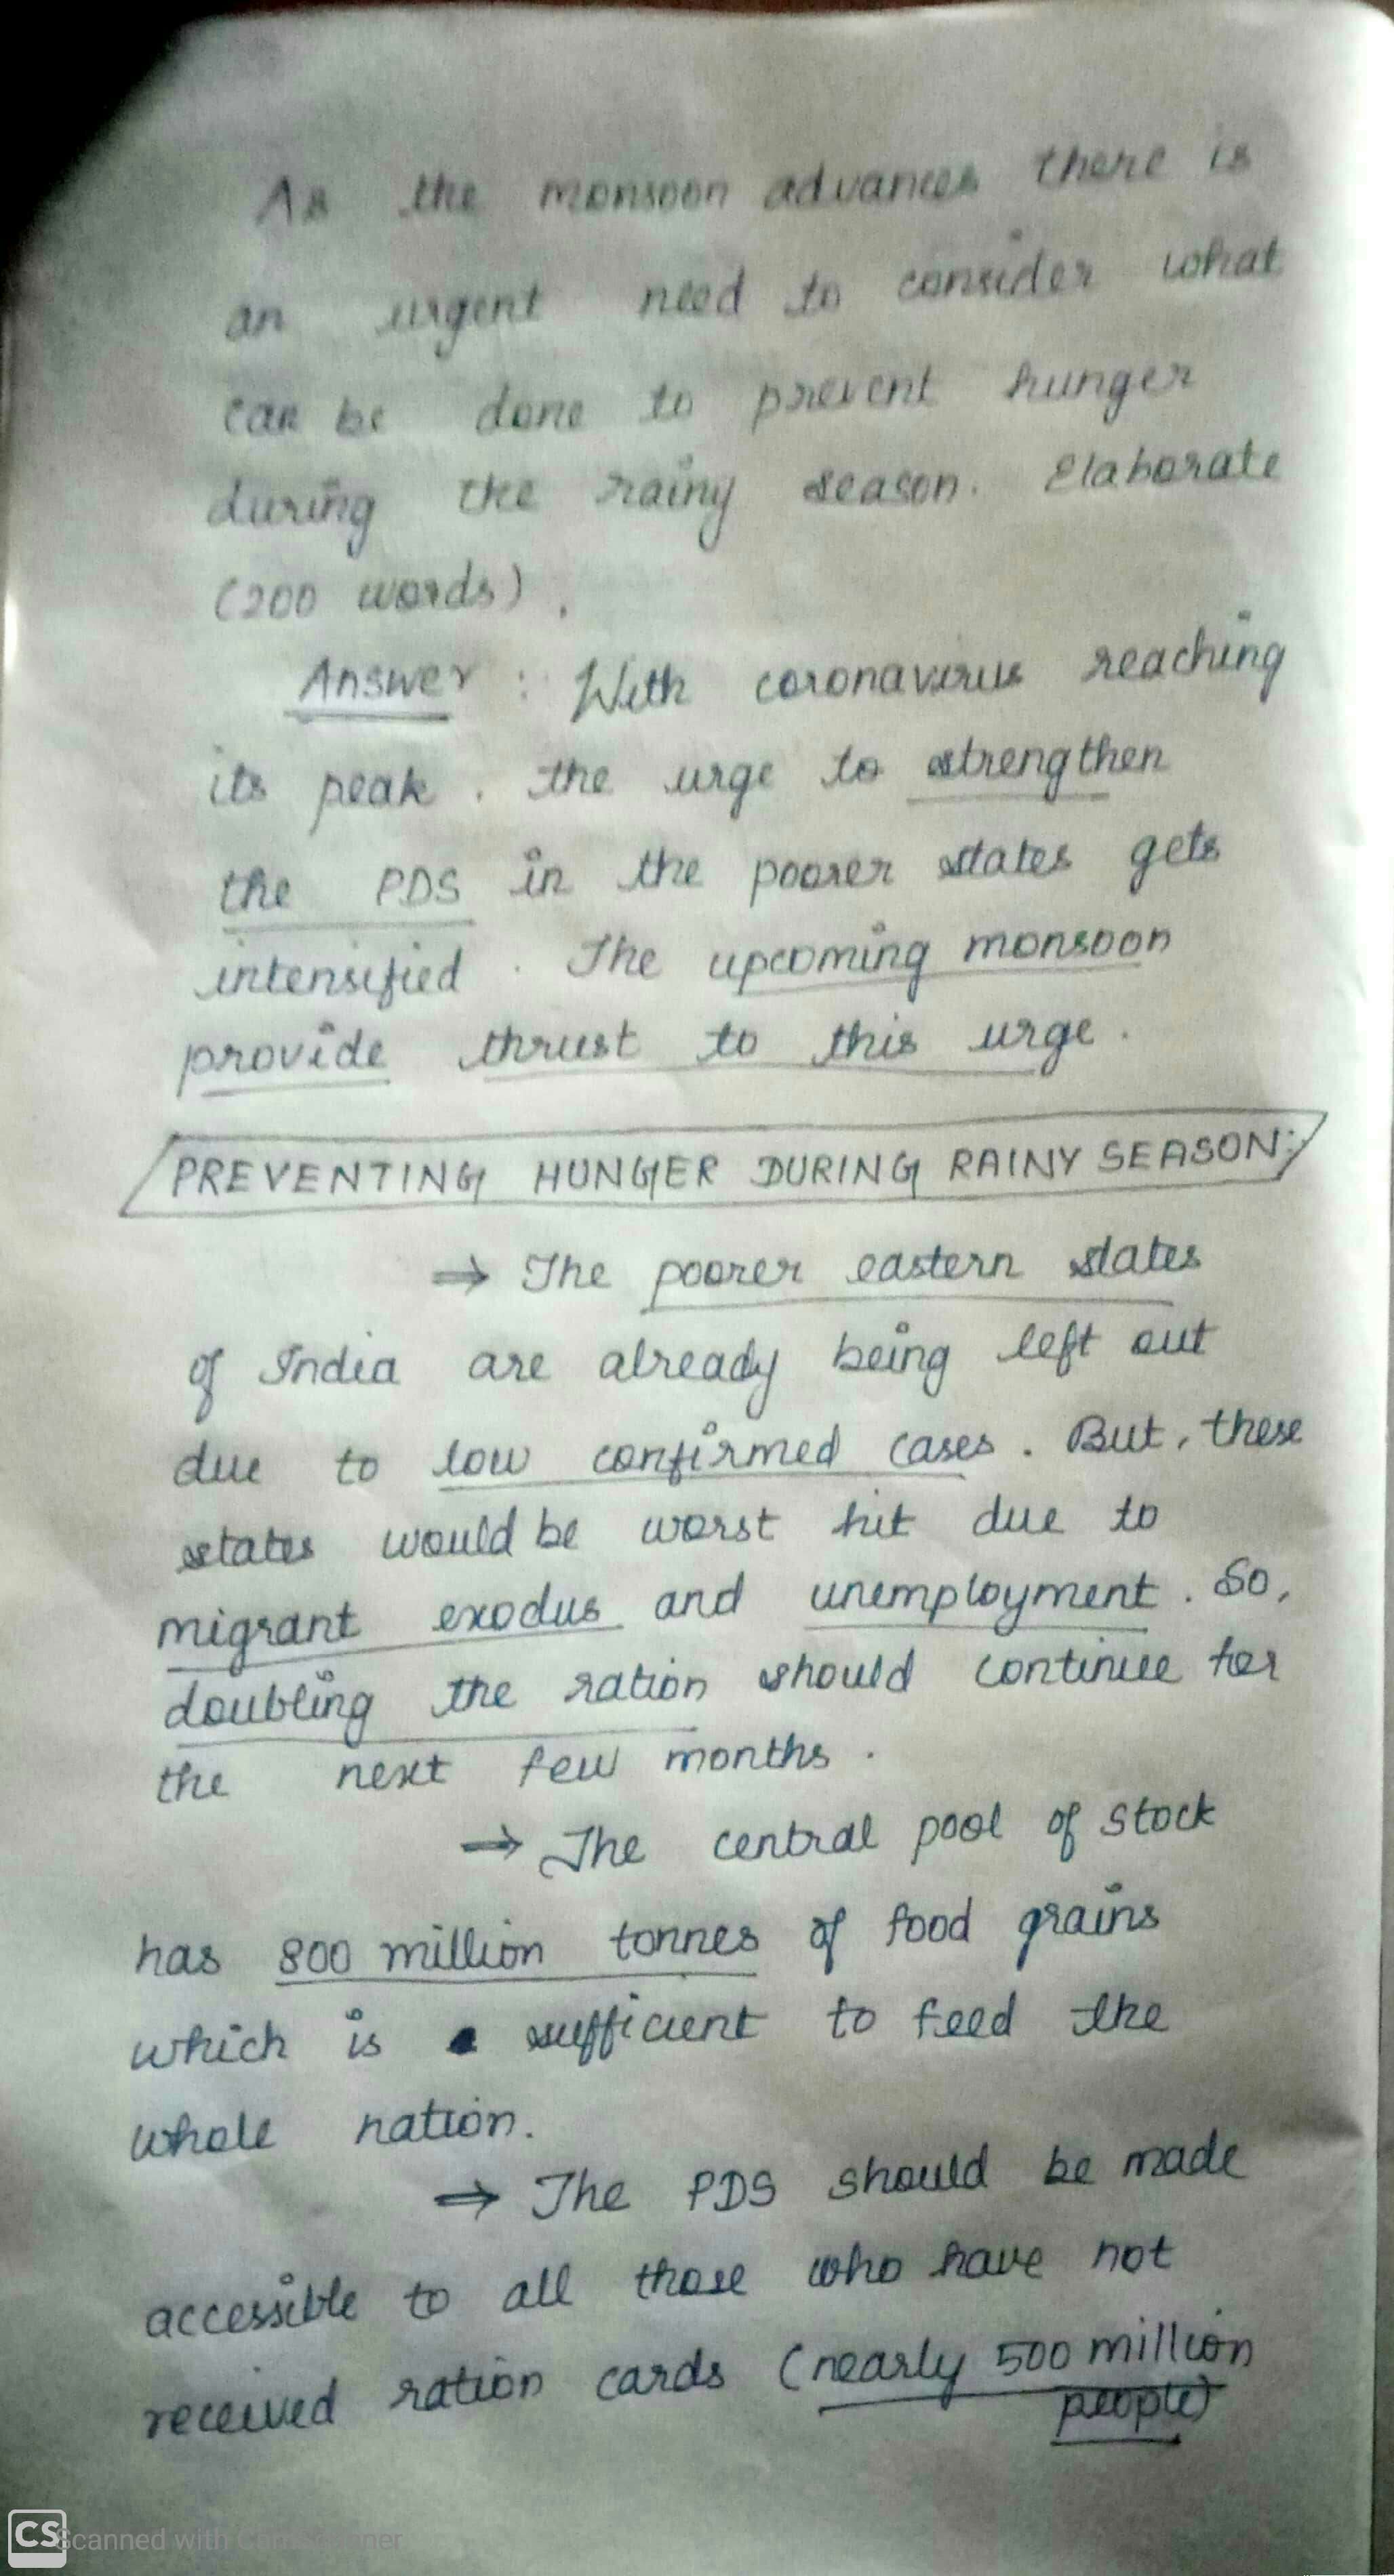 As the monsoon advances there is
an urgent need to consider what
can be done to prevent hunger
during the rainy season. Elaborate
(200 words).
Answer : With coronavirus reaching
its peak, the urge to strengthen
the PDS in the poorer states gets
intensified. The upcoming monsoon
provide thrust to this urge.
PREVENTING HUNGER DURING RAINY SEASON:
⇒ The poorer eastern states
of India are already being left out
due to low confirmed cases. But, these
states would be worst hit due to
migrant exodus and unemployment. So,
doubling the ration should continue for
the next few months.
⇒ The central pool of stock
has 800 million tonnes of food grains
which is sufficient to feed the
whole nation.
⇒ The PDS should be made
accessible to all those who have not
received ration cards (nearly 500 million
people)
CS Scanned with CamScanner